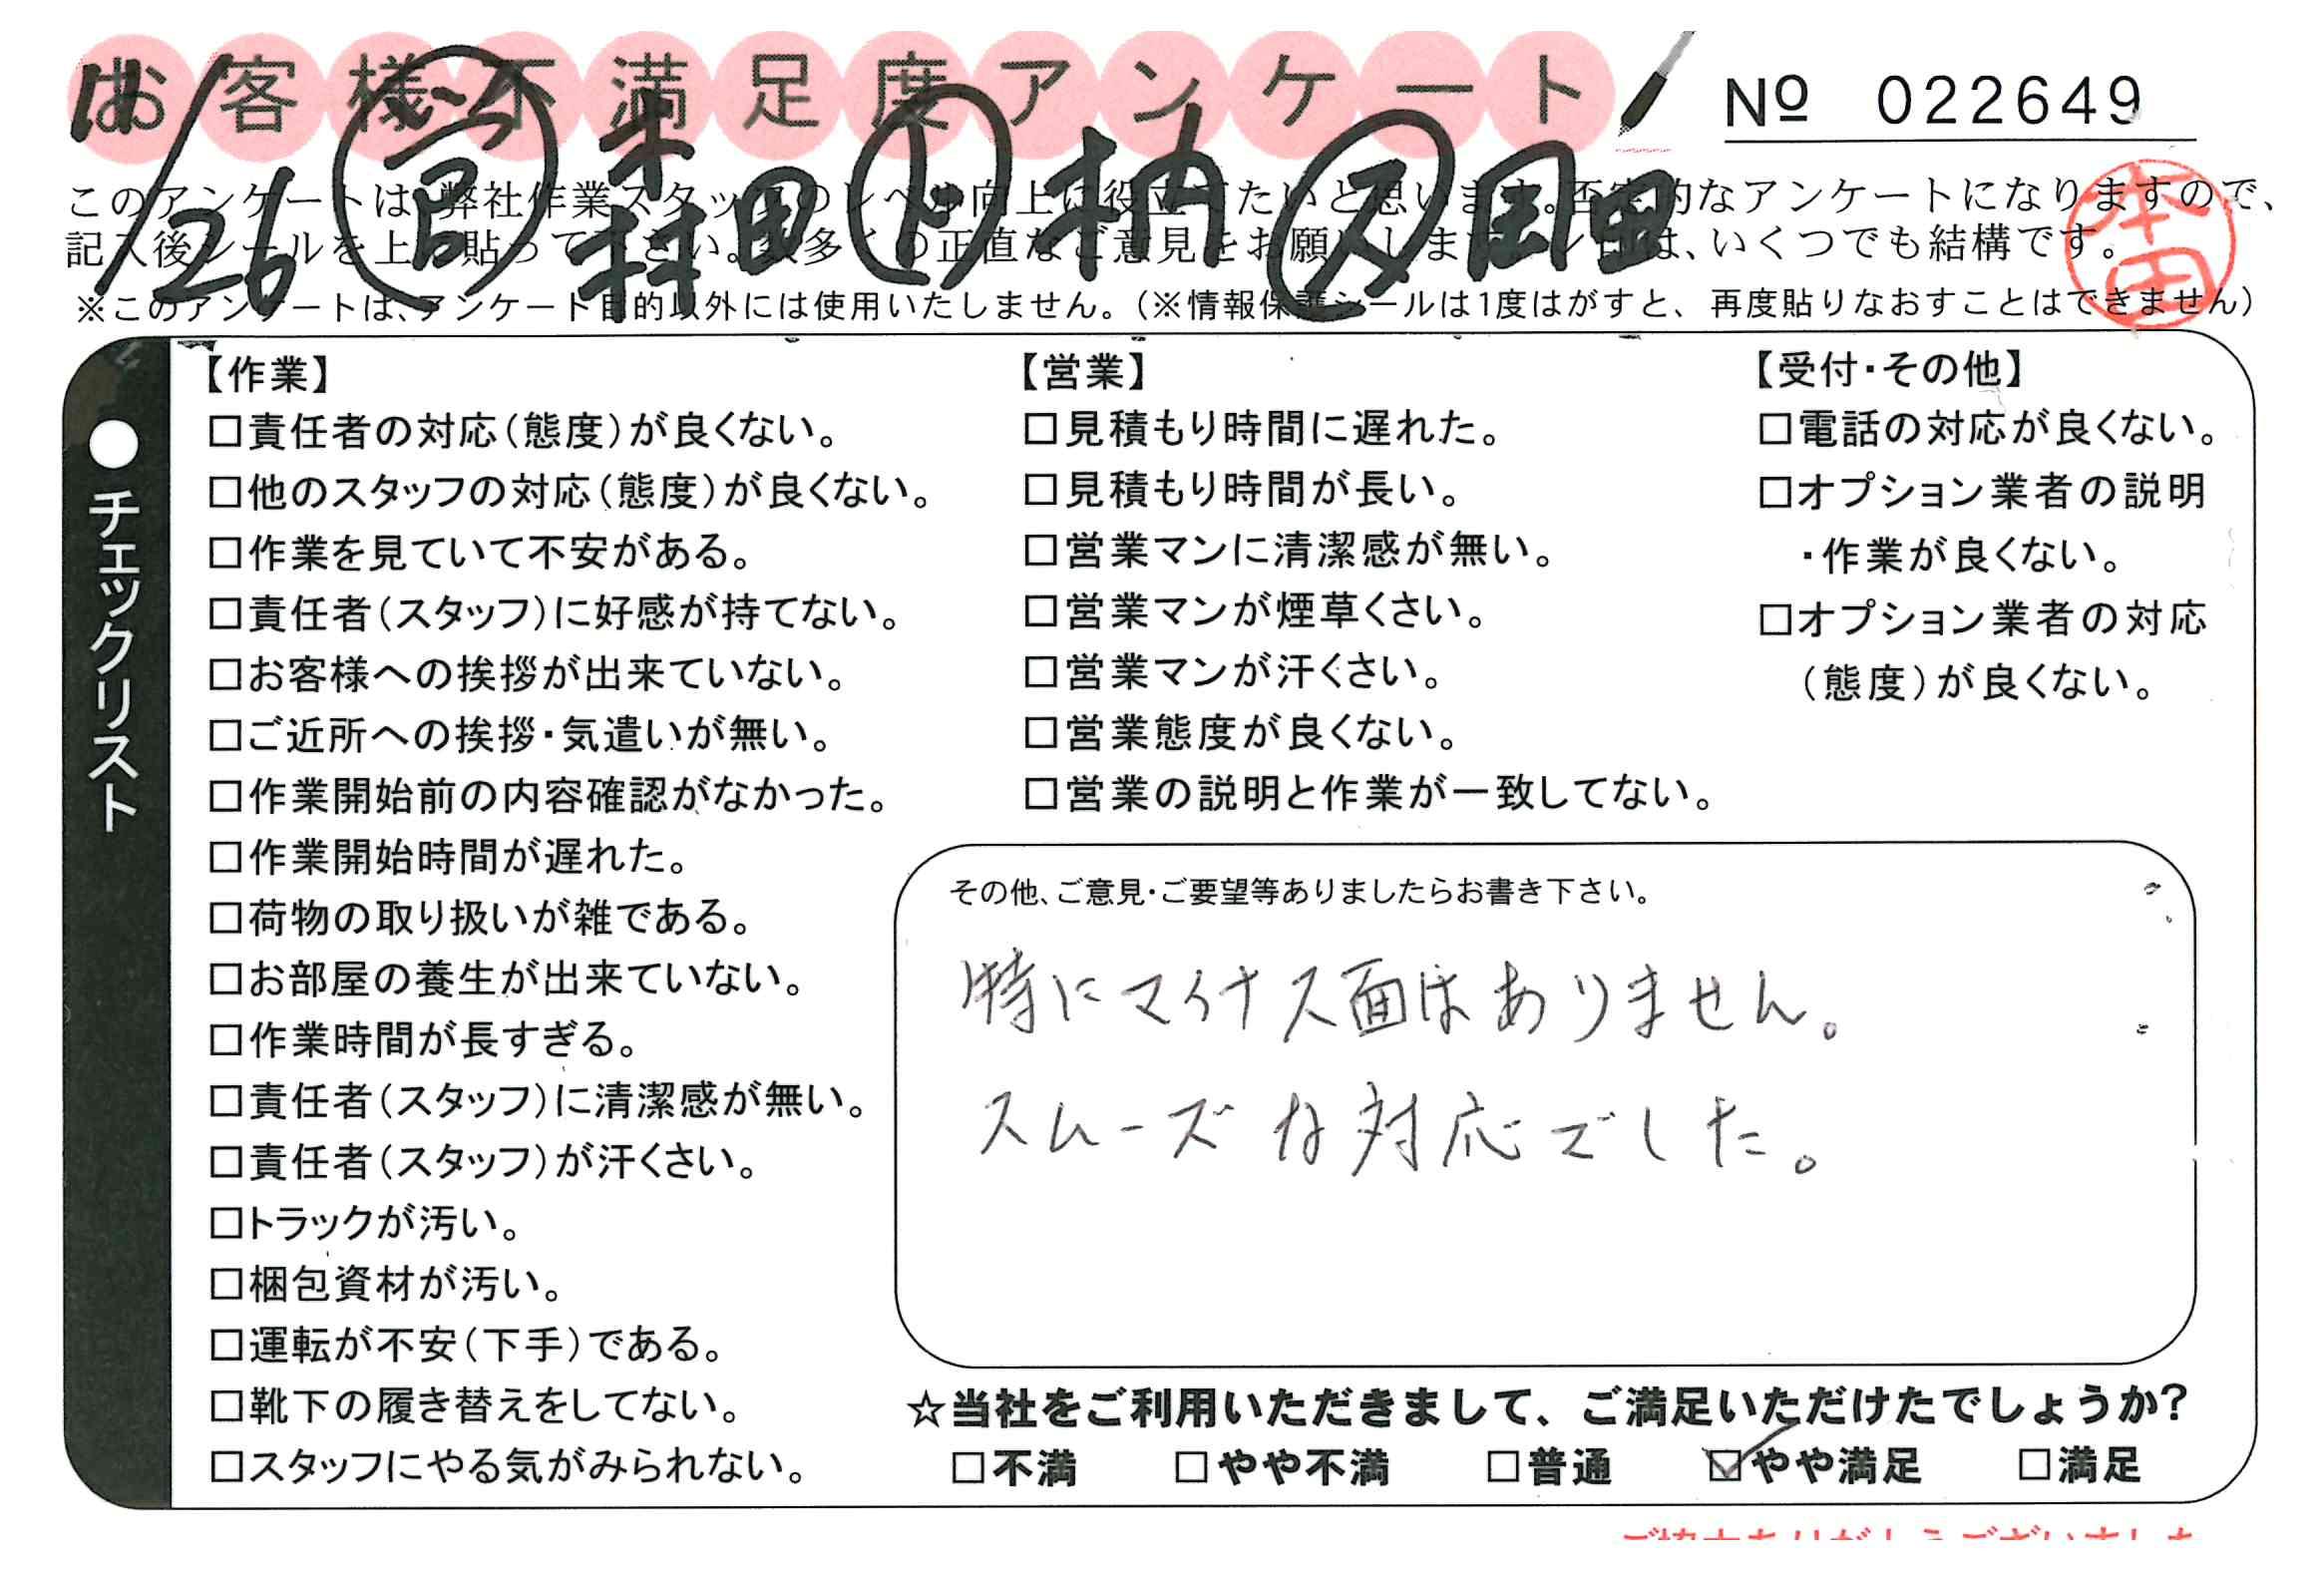 お客様不満足度アンケート
No 022649
11/26
村田
岡田
本田
このアンケートは、弊社作業スタッフのレベル向上に役立てたいと思います。否定的なアンケートになりますので、
記入後シールを上に貼って下さい。数多くの正直なご意見をお願いします。 は、いくつでも結構です。
※このアンケートは、アンケート目的以外には使用いたしません。（※情報保護シールは1度はがすと、再度貼りなおすことはできません）
●チェックリスト
【作業】
□責任者の対応（態度）が良くない。
□他のスタッフの対応（態度）が良くない。
□作業を見ていて不安がある。
□責任者（スタッフ）に好感が持てない。
□お客様への挨拶が出来ていない。
□ご近所への挨拶・気遣いが無い。
□作業開始前の内容確認がなかった。
□作業開始時間が遅れた。
□荷物の取り扱いが雑である。
□お部屋の養生が出来ていない。
□作業時間が長すぎる。
□責任者（スタッフ）に清潔感が無い。
□責任者（スタッフ）が汗くさい。
□トラックが汚い。
□梱包資材が汚い。
□運転が不安（下手）である。
□靴下の履き替えをしてない。
□スタッフにやる気がみられない。
【営業】
□見積もり時間に遅れた。
□見積もり時間が長い。
□営業マンに清潔感が無い。
□営業マンが煙草くさい。
□営業マンが汗くさい。
□営業態度が良くない。
□営業の説明と作業が一致してない。
【受付・その他】
□電話の対応が良くない。
□オプション業者の説明
・作業が良くない。
□オプション業者の対応
（態度）が良くない。
その他、ご意見・ご要望等ありましたらお書き下さい。
特にマイナス面はありません。
スムーズな対応でした。
☆当社をご利用いただきまして、ご満足いただけたでしょうか？
□不満 □やや不満 □普通 ☑やや満足 □満足
ご協力ありがとうございました